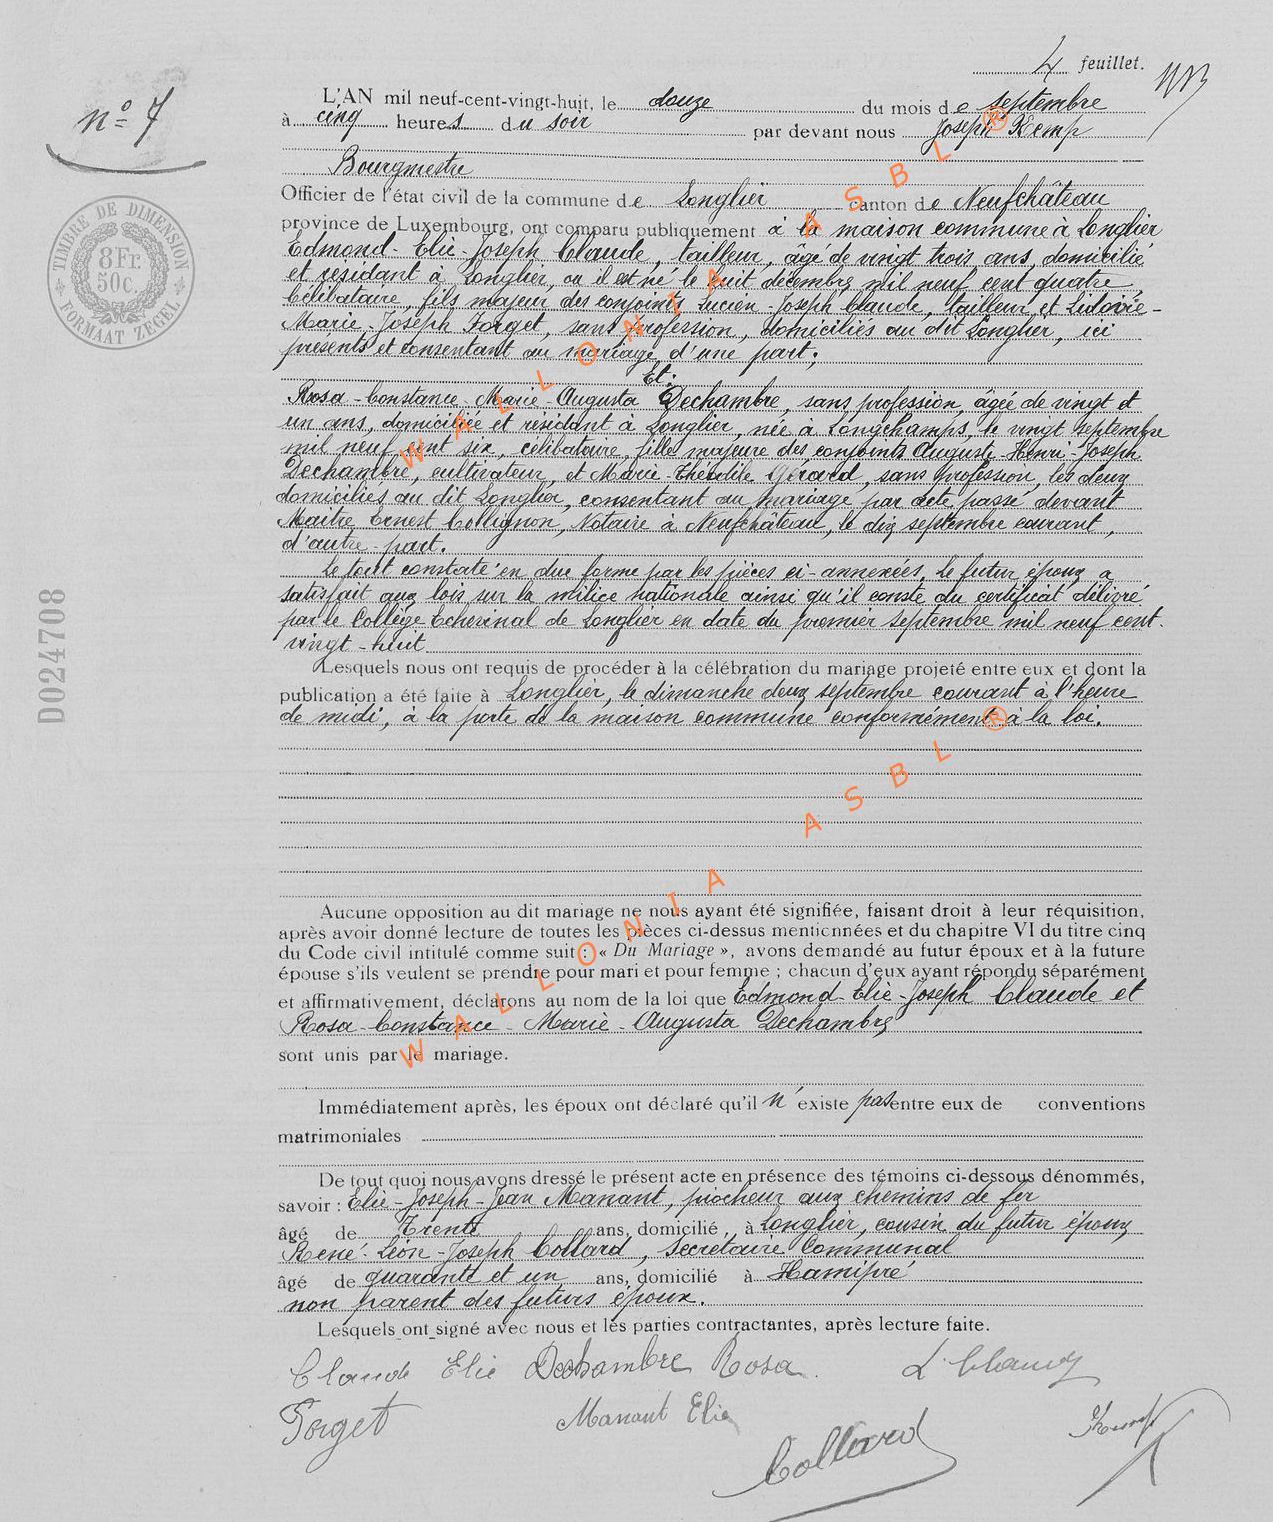 4 feuillet.
n° 7
L'AN mil neuf-cent-vingt-huit, le douze du mois de septembre
à cinq heures du soir par devant nous Joseph Kemp
Bourgmestre
Officier de l'état civil de la commune de Longlier canton de Neufchâteau
province de Luxembourg, ont comparu publiquement à la maison commune à Longlier
Edmond-Elie-Joseph Claude, tailleur, âgé de vingt trois ans, domicilié
et résidant à Longlier, où il est né le huit décembre mil neuf cent quatre,
célibataire, fils majeur des conjoints Lucien-Joseph Claude, tailleur, et Lidovie-
Marie-Joseph Forget, sans profession, domiciliés au dit Longlier, ici
présents et consentant au mariage, d'une part;
Et:
Rosa-Constance-Marie-Augusta Dechambre, sans profession, âgée de vingt et
un ans, domiciliée et résidant à Longlier, née à Longchamps, le vingt septembre
mil neuf cent six, célibataire, fille majeure des conjoints Auguste-Henri-Joseph
Dechambre, cultivateur, et Marie-Théodile Gérard, sans profession, les deux
domiciliés au dit Longlier, consentant au mariage par acte passé devant
Maître Ernest Collignon, Notaire à Neufchâteau, le dix septembre courant,
d'autre-part.
Le tout constaté en due forme par les pièces ci-annexées. Le futur époux a
satisfait aux lois sur la milice nationale ainsi qu'il conste du certificat délivré
par le Collège Echevinal de Longlier en date du premier septembre mil neuf cent.
vingt-huit
Lesquels nous ont requis de procéder à la célébration du mariage projeté entre eux et dont la
publication a été faite à Longlier, le dimanche deux septembre courant à l'heure
de midi, à la porte de la maison commune conformément à la loi.
Aucune opposition au dit mariage ne nous ayant été signifiée, faisant droit à leur réquisition,
après avoir donné lecture de toutes les pièces ci-dessus mentionnées et du chapitre VI du titre cinq
du Code civil intitulé comme suit : « Du Mariage », avons demandé au futur époux et à la future
épouse s'ils veulent se prendre pour mari et pour femme ; chacun d'eux ayant répondu séparément
et affirmativement, déclarons au nom de la loi que Edmond-Elie-Joseph Claude et
Rosa-Constance-Marie-Augusta Dechambre
sont unis par le mariage.
Immédiatement après, les époux ont déclaré qu'il n'existe pas entre eux de conventions
matrimoniales
De tout quoi nous avons dressé le présent acte en présence des témoins ci-dessous dénommés,
savoir : Elie-Joseph-Jean Manant, piocheur aux chemins de fer
âgé de Trente ans, domicilié, à Longlier, cousin du futur époux
René-Léon-Joseph Collard, secrétaire communal
âgé de quarante et un ans, domicilié à Hamipré
non parent des futurs époux.
Lesquels ont signé avec nous et les parties contractantes, après lecture faite.
Claude Elie Dechambre Rosa. L. Claude
Forget Manant Elie Kemp
Collard
TIMBRE DE DIMENSION
8 Fr.
50c.
FORMAAT ZEGEL
D024708
WALLONIA ASBL ®
WALLONIA ASBL ®